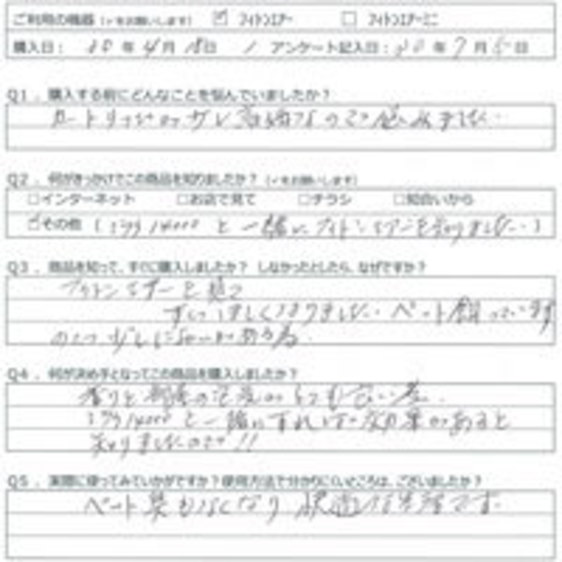 ご利用の機器（✓をお願いします） ☑ フィトンエアー □ フィトンエアーミニ
購入日： 20 年 4 月 18日 / アンケート記入日： 20 年 7 月 5 日
Q1．購入する前にどんなことを悩んでいましたか？
カートリッジが少し高価なので悩みました．
Q2．何がきっかけでこの商品を知りましたか？（✓をお願いします）
□インターネット □お店で見て □チラシ □知合いから
☑その他（ と一緒にフィトンエアーを知りました．）
Q3．商品を知って、すぐに購入しましたか？ しなかったとしたら、なぜですか？
フィトンエアーを
すぐほしくなりました．ペット飼っています
ので少しにおいがある為．
Q4．何が決め手となってこの商品を購入しましたか？
香りと
と一緒にすれば効果があると
知りましたので!!
Q5．実際に使ってみていかがですか？使用方法で分かりにくいところは、ございましたか？
ペット臭もなくなり 快適な生活です．